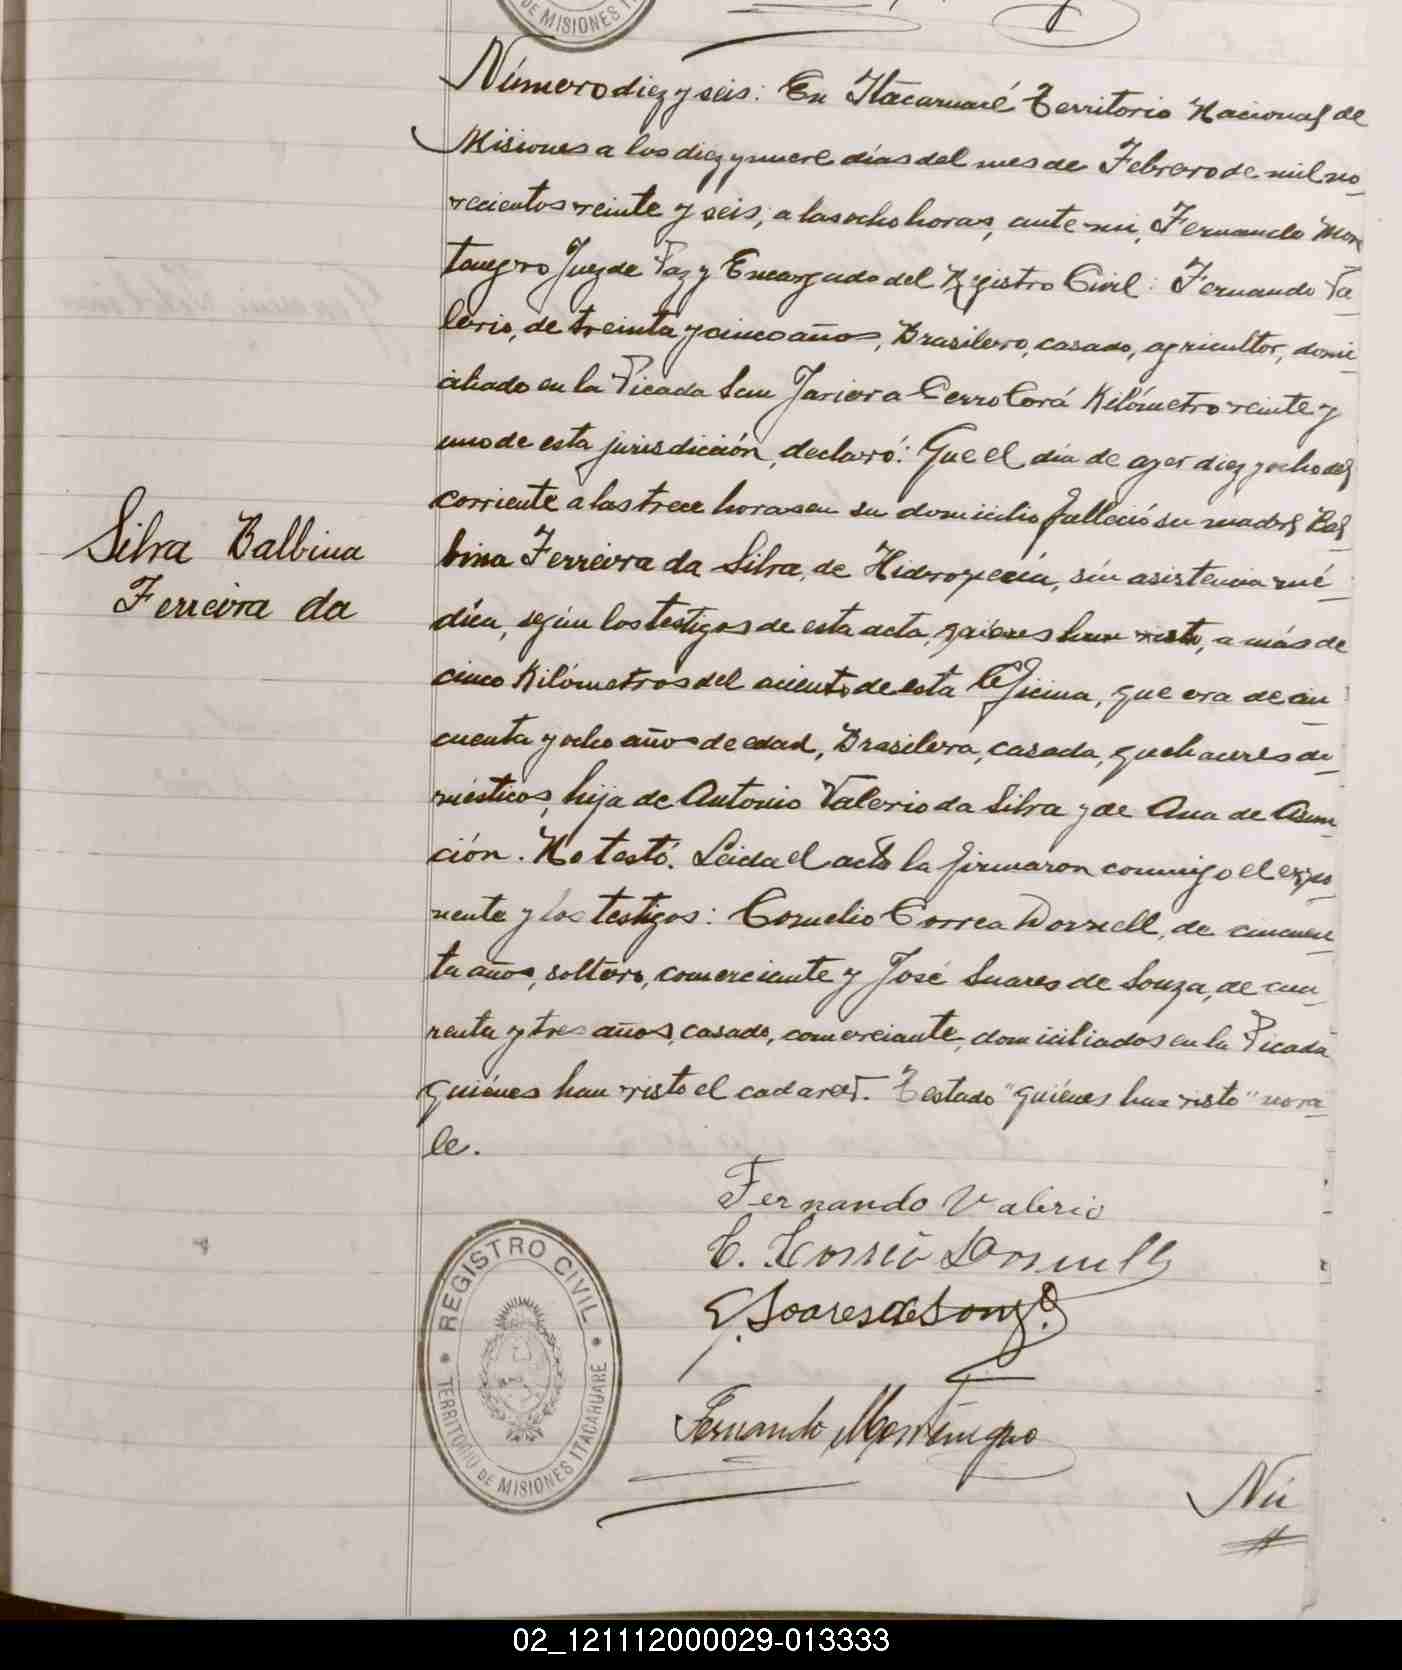 DE MISIONES
Número diez y seis: En Itacaruaré Territorio Nacional de
Misiones a los diez y nueve días del mes de Febrero de mil no-
vecientos veinte y seis, a las ocho horas, ante mi, Fernando Mon
tenegro Juez de Paz y Encargado del Registro Civil: Fernando Va-
lerio, de treinta y cinco años, Brasilero, casado, agricultor, domi-
ciliado en la Picada San Javier a Cerro Corá Kilómetro veinte y
uno de esta jurisdicción, declaró: Que el día de ayer diez y ocho del
corriente a las trece horas en su domicilio falleció su madre Bal
bina Ferreira da Silva, de Hidropecía, sin asistencia mé-
dica, según los testigos de esta acta, quienes han visto, a más de
cinco Kilómetros del asiento de esta Oficina, que era de cin-
cuenta y ocho años de edad, Brasilera, casada, quehaceres do-
mésticos, hija de Antonio Valerio da Silva y de Ana de Asun-
ción. No testó. Leida el acta la firmaron conmigo el expo-
nente y los testigos: Cornelio Correa Dornell, de cincuen-
ta años, soltero, comerciante y José Suares de Souza, de cua-
renta y tres años, casado, comerciante, domiciliados en la Picada
quiénes han visto el cadaver. Testado "quiénes han visto" no va-
le.
Silva Balbina
Ferreira da
Fernando Valerio
C. Correa Dornell
Soares de Souza
Fernando Montenegro
REGISTRO CIVIL
TERRITORIO DE MISIONES ITACARUARE
Nú
02_121112000029-013333